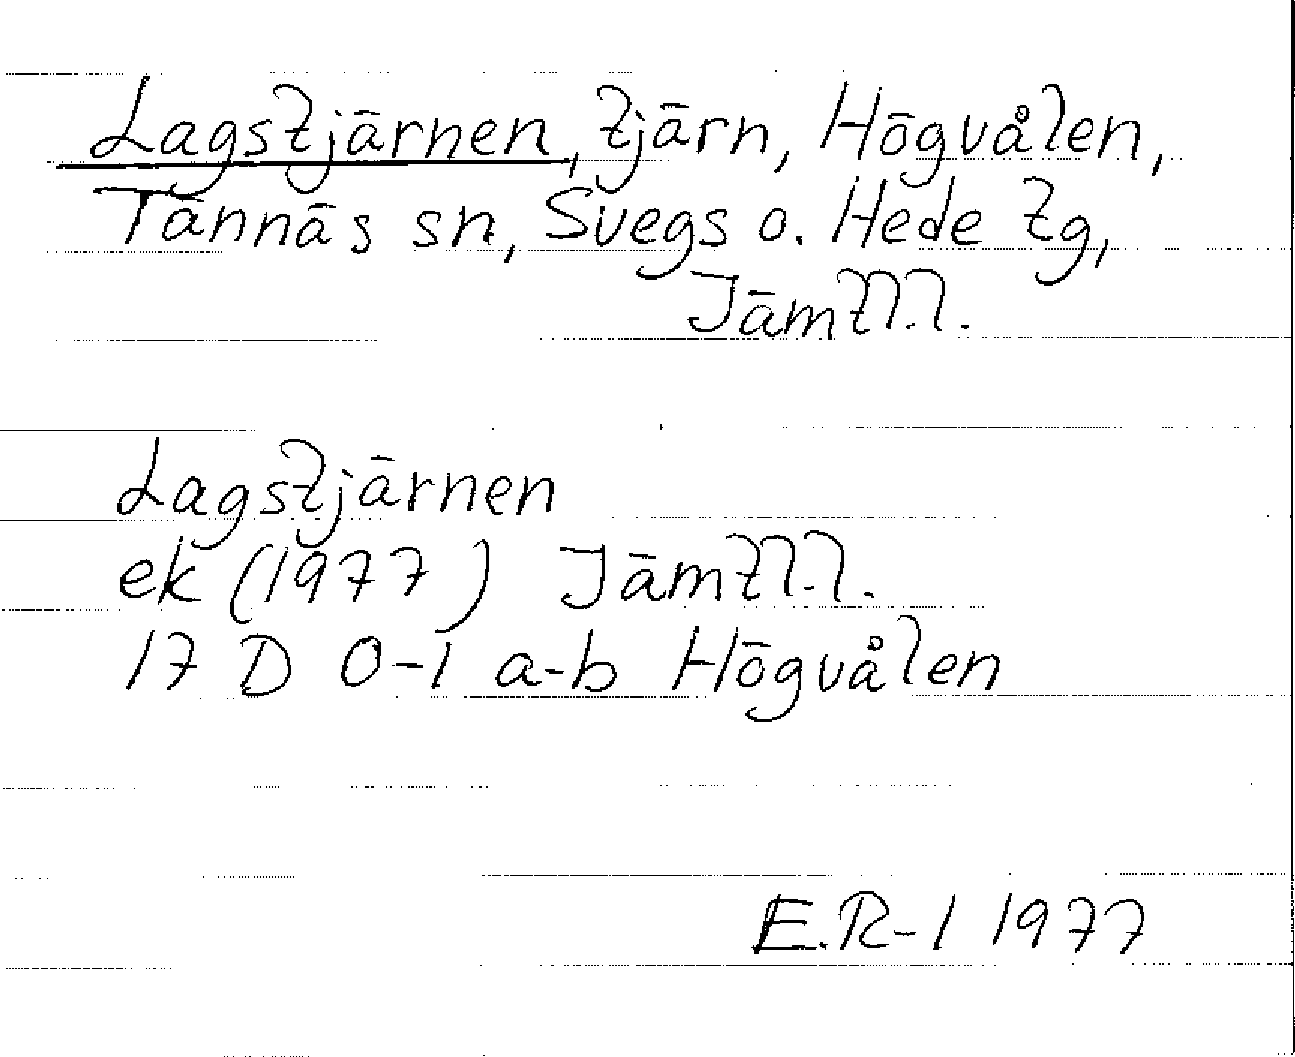 Lagstjärnen, tjärn, Högvålen,
Tännäs sn, Svegs o. Hede tg,
Jämtl.l.
Lagstjärnen
ek (1977) Jämtl.l.
17 D 0-1 a-b Högvålen
E.R-l 1977